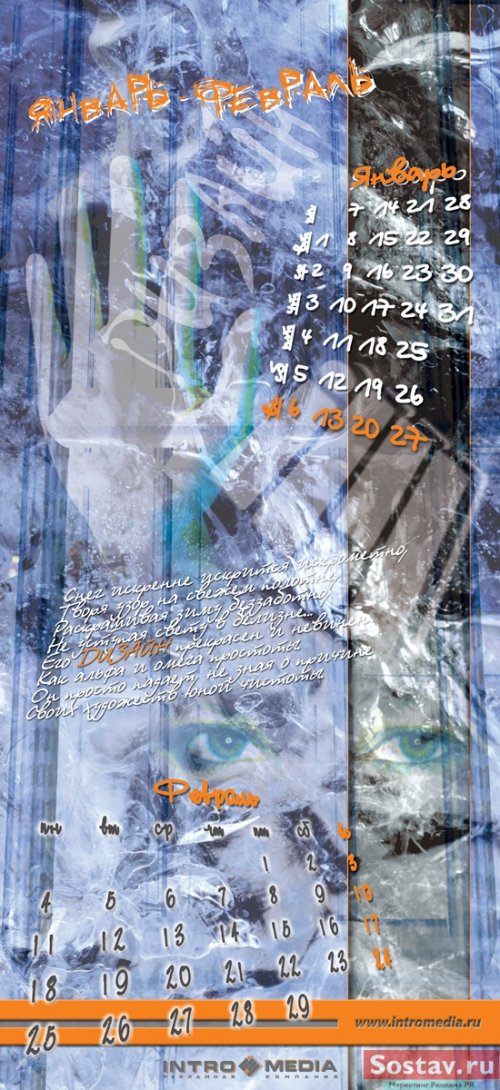 ЯНВАРЬ - ФЕВРАЛЬ
ДИЗАЙН
Январь
7 14 21 28
1 8 15 22 29
2 9 16 23 30
3 10 17 24 31
4 11 18 25
5 12 19 26
6 13 20 27
Снег искренне искрится искрометно,
Творя узор на свежем полотне,
Раскрашивая зиму беззаботно,
Не уступая свету в белизне...
Его ДИЗАЙН прекрасен и невинен
Как альфа и омега простоты
Он просто падает, не зная о причине
Своих художеств юной чистоты
Февраль
пн вт ср чт пт сб в
1 2 3
4 5 6 7 8 9 10
11 12 13 14 15 16 17
18 19 20 21 22 23 24
25 26 27 28 29
www.intromedia.ru
INTRO MEDIA
РЕКЛАМНАЯ КОМПАНИЯ
Sostav.ru
Маркетинг Реклама PR